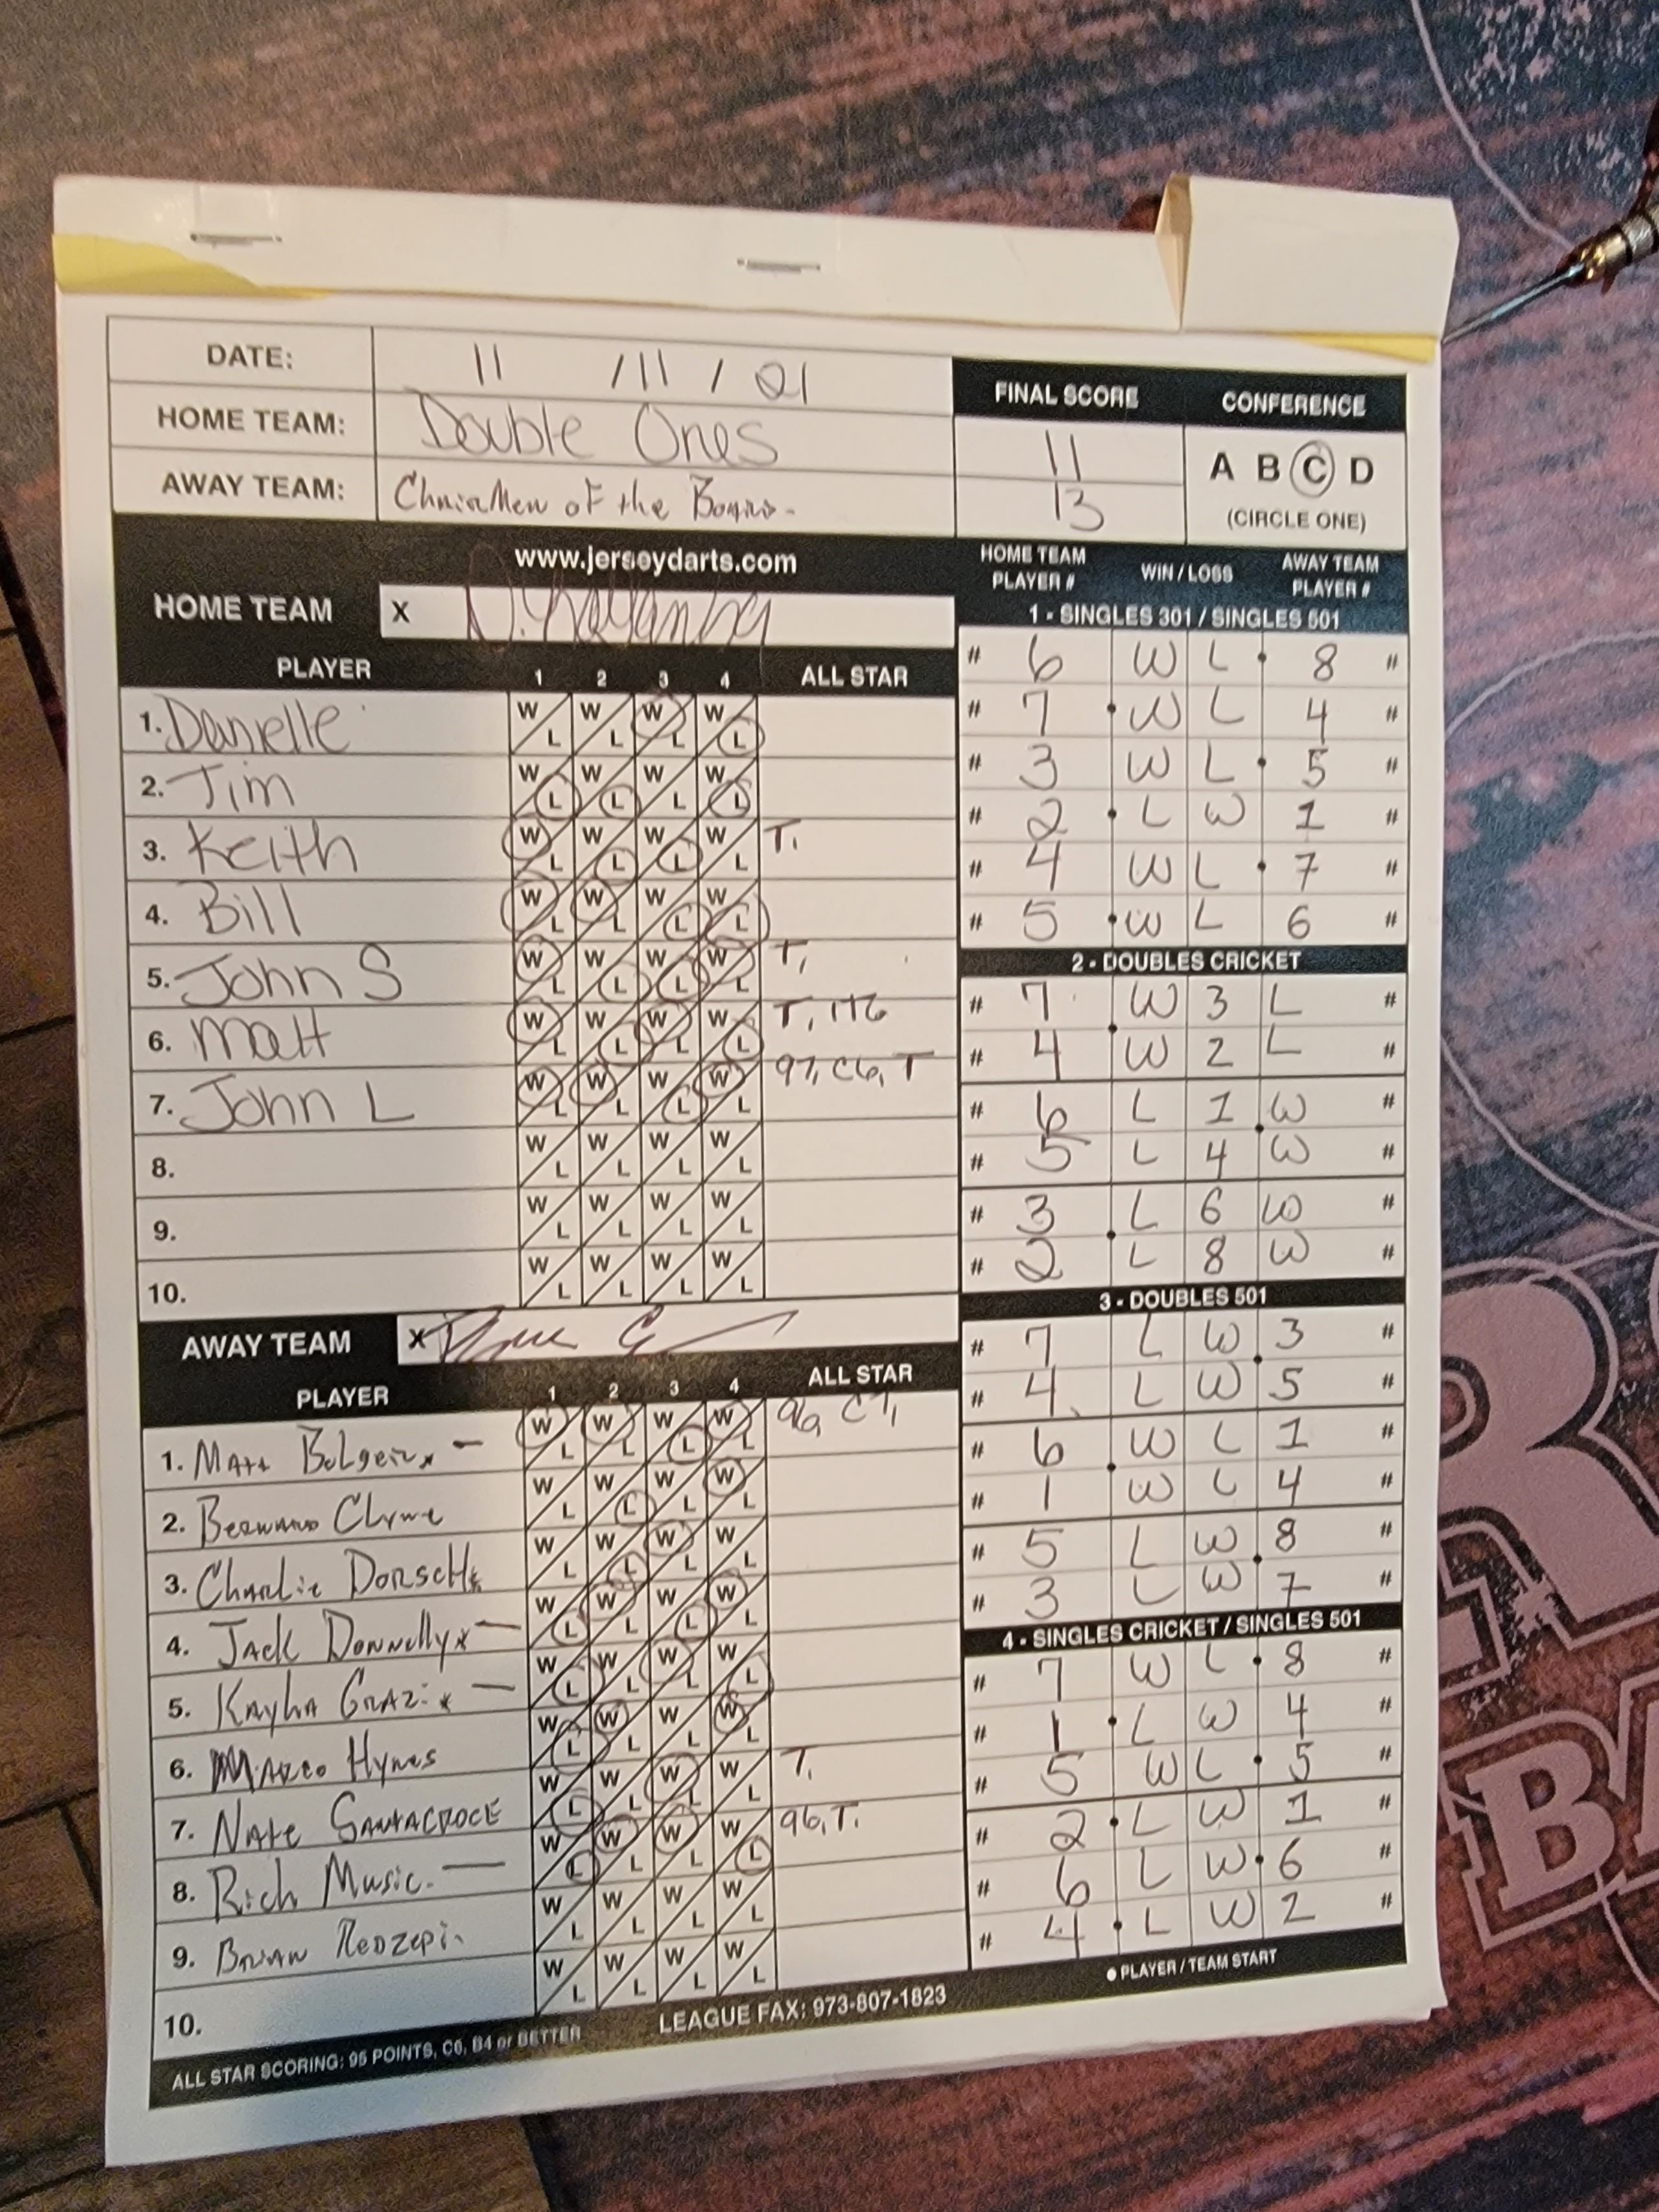 DATE: 11 /11 / 21
HOME TEAM: Double Ones
AWAY TEAM: ChairMen of the Board.
FINAL SCORE CONFERENCE
11
13
A B C D
(CIRCLE ONE)
www.jerseydarts.com
HOME TEAM X
PLAYER 1 2 3 4 ALL STAR
1. Danielle W L W L W L W L
2. Tim W L W L W L W L
3. Keith W L W L W L W L T,
4. Bill W L W L W L W L
5. John S W L W L W L W L T,
6. Matt W L W L W L W L T, 116
7. John L W L W L W L W L 97, C6, T
8. W L W L W L W L
9. W L W L W L W L
10. W L W L W L W L
AWAY TEAM X
PLAYER 1 2 3 4 ALL STAR
1. Matt Bolger x - W L W L W L W L 96, C7,
2. Bernard Clyne W L W L W L W L
3. Charlie Dorsch W L W L W L W L
4. Jack Donnelly x - W L W L W L W L
5. Kayla Grazi x - W L W L W L W L
6. Hynes W L W L W L W L
7. Nate Santacroce W L W L W L W L T,
8. Rich Music. - W L W L W L W L 96, T,
9. Brian Redzepi W L W L W L W L
10. W L W L W L W L
ALL STAR SCORING: 95 POINTS, C6, B4 or BETTER LEAGUE FAX: 973-807-1823
HOME TEAM PLAYER # WIN / LOSS AWAY TEAM PLAYER #
1 - SINGLES 301 / SINGLES 501
# 6 W L • 8 #
# 7 • W L 4 #
# 3 W L • 5 #
# 2 • L W 1 #
# 4 W L • 7 #
# 5 • W L 6 #
2 - DOUBLES CRICKET
# 7 W 3 L #
# 4 W 2 L #
# 6 L 1 W #
# 5 L 4 W #
# 3 L 6 W #
# 2 L 8 W #
3 - DOUBLES 501
# 7 L W 3 #
# 4 L W 5 #
# 6 W L 1 #
# 1 W L 4 #
# 5 L W 8 #
# 3 L W 7 #
4 - SINGLES CRICKET / SINGLES 501
# 7 W L • 8 #
# 1 • L W 4 #
# 5 W L • 5 #
# 2 • L W 1 #
# 6 L W • 6 #
# 4 • L W 2 #
● PLAYER / TEAM START